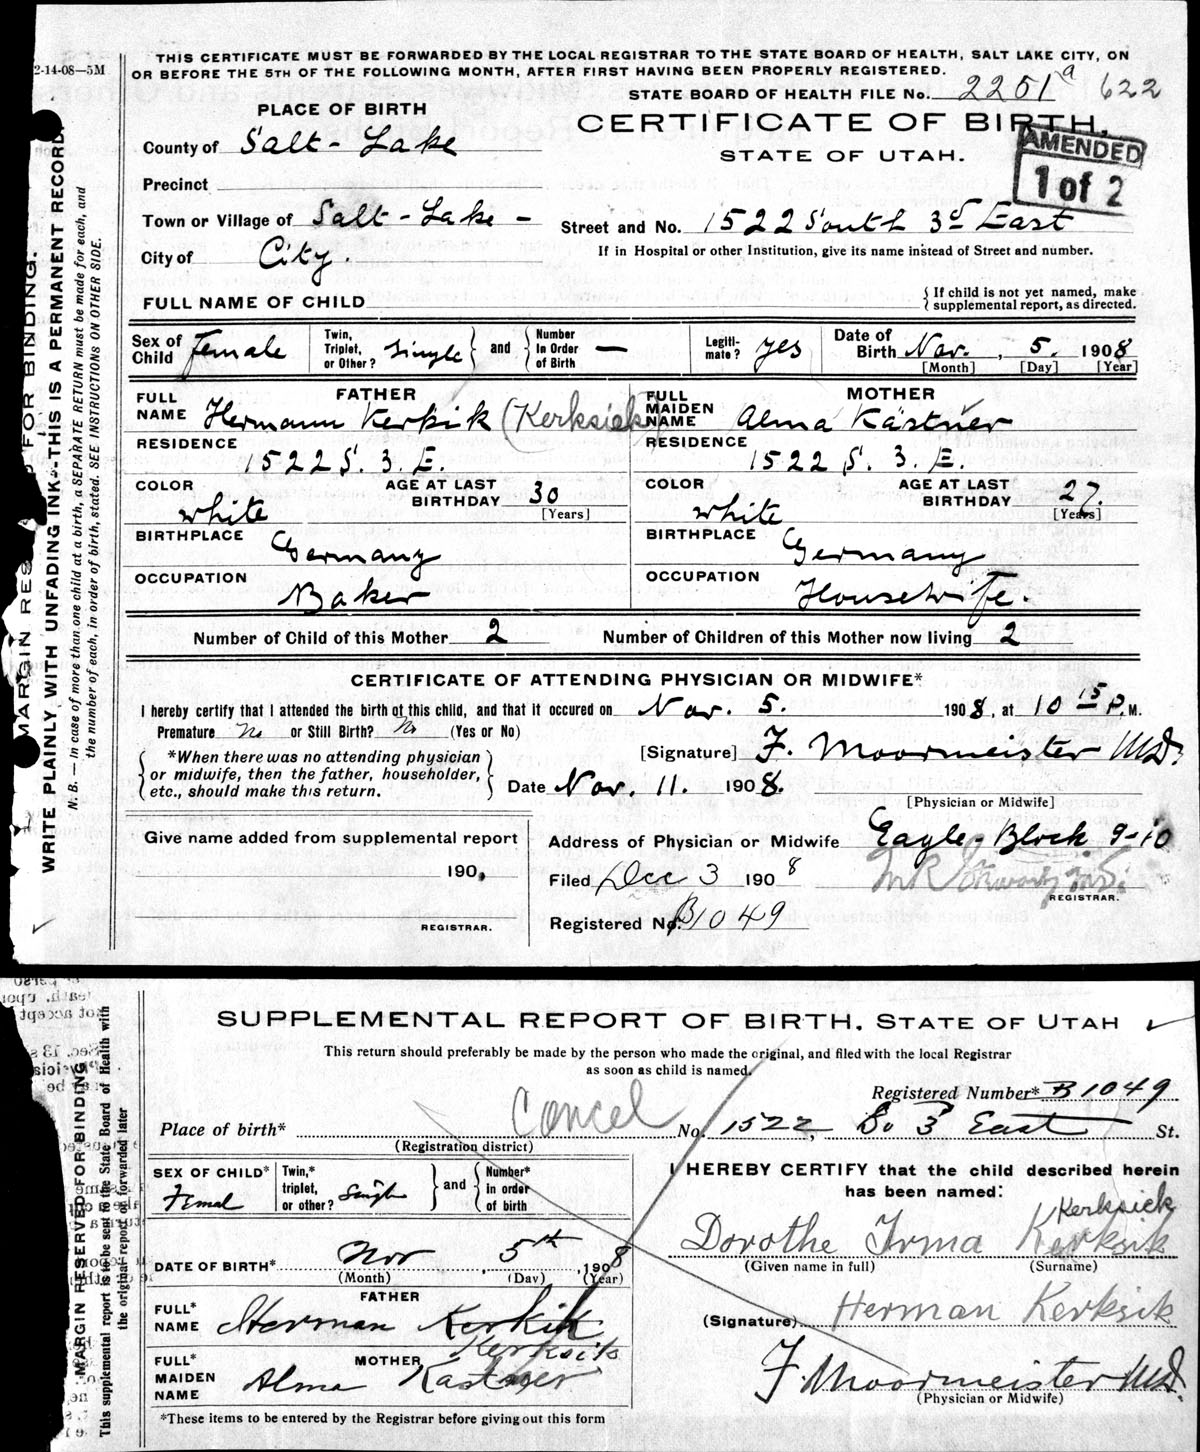 THIS CERTIFICATE MUST BE FORWARDED BY THE LOCAL REGISTRAR TO THE STATE BOARD OF HEALTH, SALT LAKE CITY, ON
OR BEFORE THE 5TH OF THE FOLLOWING MONTH, AFTER FIRST HAVING BEEN PROPERLY REGISTERED.
2-14-08—5M
STATE BOARD OF HEALTH FILE No. 2251 a 622
PLACE OF BIRTH
CERTIFICATE OF BIRTH.
STATE OF UTAH.
AMENDED
1 of 2
County of Salt-Lake
Precinct
Town or Village of Salt-Lake-
Street and No. 1522 South 3d East
If in Hospital or other Institution, give its name instead of Street and number.
City of City.
FULL NAME OF CHILD
{If child is not yet named, make supplemental report, as directed.
Sex of Child Female
Twin, Triplet, or Other? Single } and { Number In Order of Birth —
Legitimate? yes
Date of Birth Nov., 5. 1908
[Month] [Day] [Year]
FATHER
FULL NAME Hermann Kerkik (Kerksiek)
MOTHER
FULL MAIDEN NAME Alma Kästner
RESIDENCE 1522 S. 3. E.
RESIDENCE 1522 S. 3. E.
COLOR white AGE AT LAST BIRTHDAY 30 [Years]
COLOR white AGE AT LAST BIRTHDAY 27. [Years]
BIRTHPLACE Germany
BIRTHPLACE Germany
OCCUPATION Baker
OCCUPATION Housewife.
Number of Child of this Mother 2 Number of Children of this Mother now living 2
CERTIFICATE OF ATTENDING PHYSICIAN OR MIDWIFE*
I hereby certify that I attended the birth of this child, and that it occured on Nov. 5. 1908, at 10 15 P.M.
Premature No or Still Birth? No (Yes or No)
[Signature] F. Moormeister M.D.
{*When there was no attending physician or midwife, then the father, householder, etc., should make this return.}
Date Nov. 11. 1908.
[Physician or Midwife]
Give name added from supplemental report
190,
REGISTRAR.
Address of Physician or Midwife Eagle-Block 9-10
Filed Dec 3 1908
REGISTRAR.
Registered No. B1049
MARGIN RES FOR BINDING.
WRITE PLAINLY WITH UNFADING INK-THIS IS A PERMANENT RECORD.
N. B. — In case of more than one child at a birth, a SEPARATE RETURN must be made for each, and
the number of each, in order of birth, stated. SEE INSTRUCTIONS ON OTHER SIDE.
SUPPLEMENTAL REPORT OF BIRTH. STATE OF UTAH
This return should preferably be made by the person who made the original, and filed with the local Registrar
as soon as child is named.
Cancel
Registered Number* B1049
Place of birth* No. 1522, So 3 East St.
(Registration district)
SEX OF CHILD* Femal
Twin,* triplet, or other? Single } and { Number* in order of birth
I HEREBY CERTIFY that the child described herein
has been named:
Kerksiek
Dorothe Irma Kerksik
(Given name in full) (Surname)
DATE OF BIRTH* Nov, 5th, 1908
(Month) (Day) (Year)
FATHER
FULL* NAME Herman Kerkik
Kerksik
(Signature) Herman Kerksik
MOTHER
FULL* MAIDEN NAME Alma Kastner
F. Moormeister M.D.
(Physician or Midwife)
*These items to be entered by the Registrar before giving out this form
MARGIN RESERVED FOR BINDING
This supplemental report is to be sent to the State Board of Health with
the original report of forwarded later